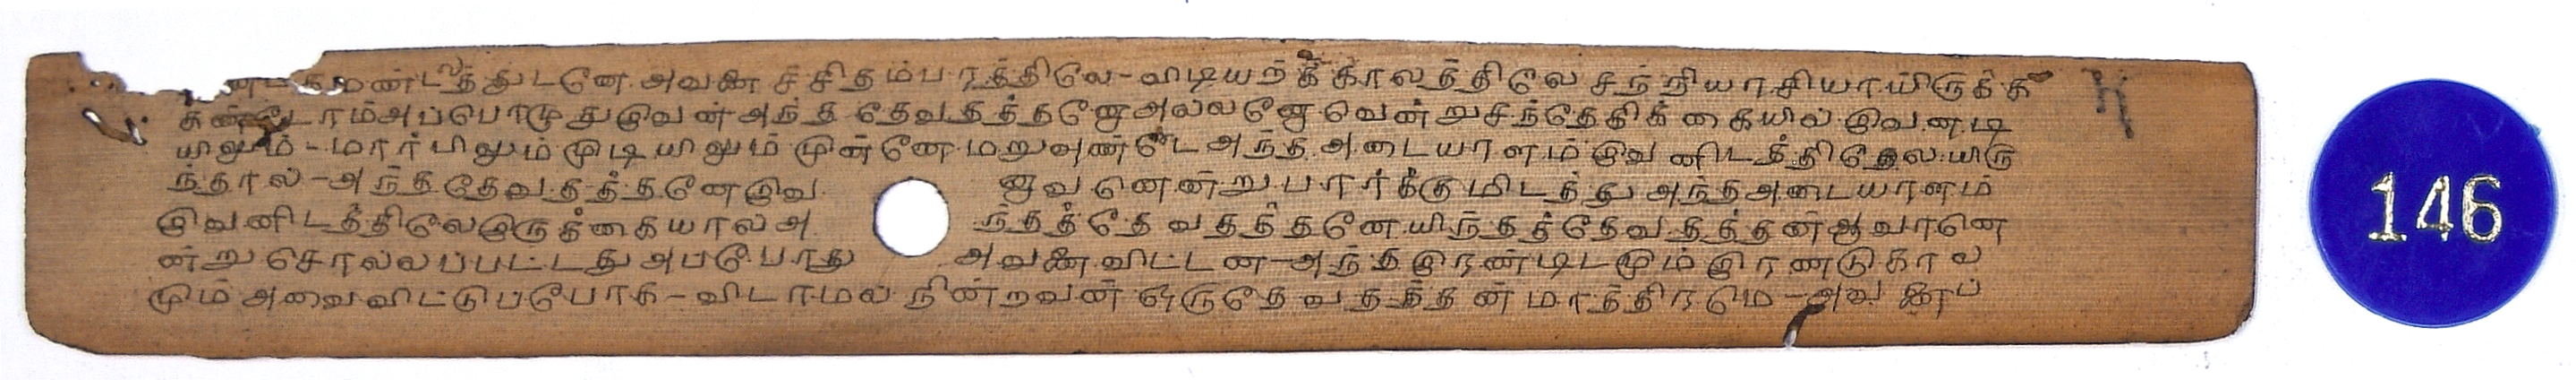 ன-கமண்டலத்துடனே அவனை ச்சிதம்பரத்திலே-விடியற்க்காலத்திலே சந்நியாசியாயிருக்க
கண்டோம்அப்பொழுதுஇவன்அந்த தேவதத்தனோஅல்லனோவென்றுசந்தேகிக்கையில் இவனடி
யிலும்-மார்பிலும்முடியிலும் முன்னே மறுவுண்டே அந்த அடையாளம் இவனிடத்திலேயிரு
ந்தால்-அந்த தேவதத்தனேஇவ னிவனென்றுபார்க்குமிடத்து அந்தஅடையாளம்
இவனிடத்திலேஇருக்கையால்அ ந்தத்தேவதத்தனேயிந்தத்தேவதத்தன்ஆவானெ
ன்றுசொல்லப்பட்டதுஅப்போது அவனைவிட்டன-அந்தஇரண்டிடமும்இரண்டுகால
மும்அவைவிட்டுப்போக-விடாமல் நின்றவன் ஒருதேவதத்தன் மாத்திரமெ-அவனைப்
146